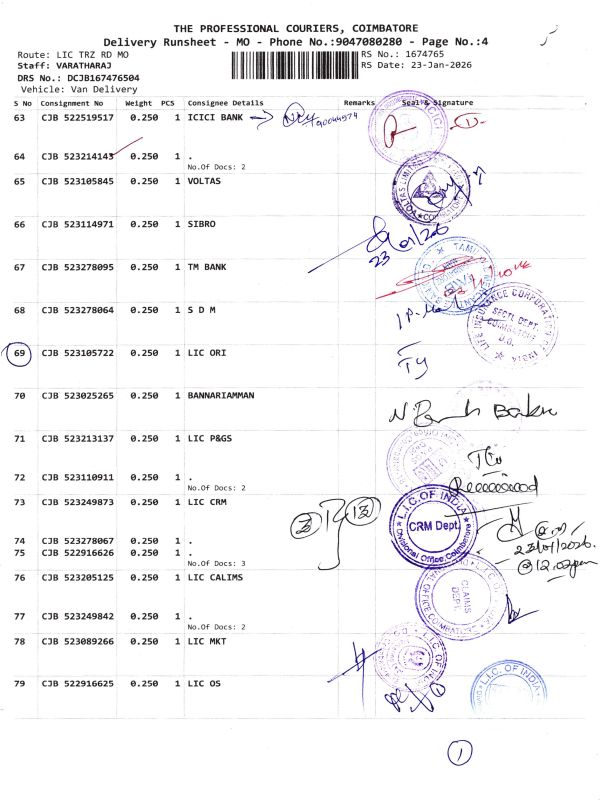 THE PROFESSIONAL COURIERS, COIMBATORE
Delivery Runsheet - MO - Phone No.:9047080280 - Page No.:4
Route: LIC TRZ RD MO
RS No.: 1674765
Staff: VARATHARAJ
RS Date: 23-Jan-2026
DRS No.: DCJB167476504
Vehicle: Van Delivery
S No Consignment No Weight PCS Consignee Details Remarks Seal & Signature
63 CJB 522519517 0.250 1 ICICI BANK
64 CJB 523214143 0.250 1 .
No.Of Docs: 2
65 CJB 523105845 0.250 1 VOLTAS
66 CJB 523114971 0.250 1 SIBRO
23/01/26
67 CJB 523278095 0.250 1 TM BANK
68 CJB 523278064 0.250 1 S D M
LIFE INSURANCE CORPORATION
69 CJB 523105722 0.250 1 LIC ORI
70 CJB 523025265 0.250 1 BANNARIAMMAN
71 CJB 523213137 0.250 1 LIC P&GS
72 CJB 523110911 0.250 1 .
No.Of Docs: 2
73 CJB 523249873 0.250 1 LIC CRM
L.I.C. OF INDIA
CRM Dept.
Divisional Office, Coimbatore
23/01/2026.
@ 12.02pm
74 CJB 523278067 0.250 1 .
75 CJB 522916626 0.250 1 .
No.Of Docs: 3
76 CJB 523205125 0.250 1 LIC CALIMS
CLAIMS
DEPT.
77 CJB 523249842 0.250 1 .
No.Of Docs: 2
78 CJB 523089266 0.250 1 LIC MKT
79 CJB 522916625 0.250 1 LIC OS
L.I.C. OF INDIA
1